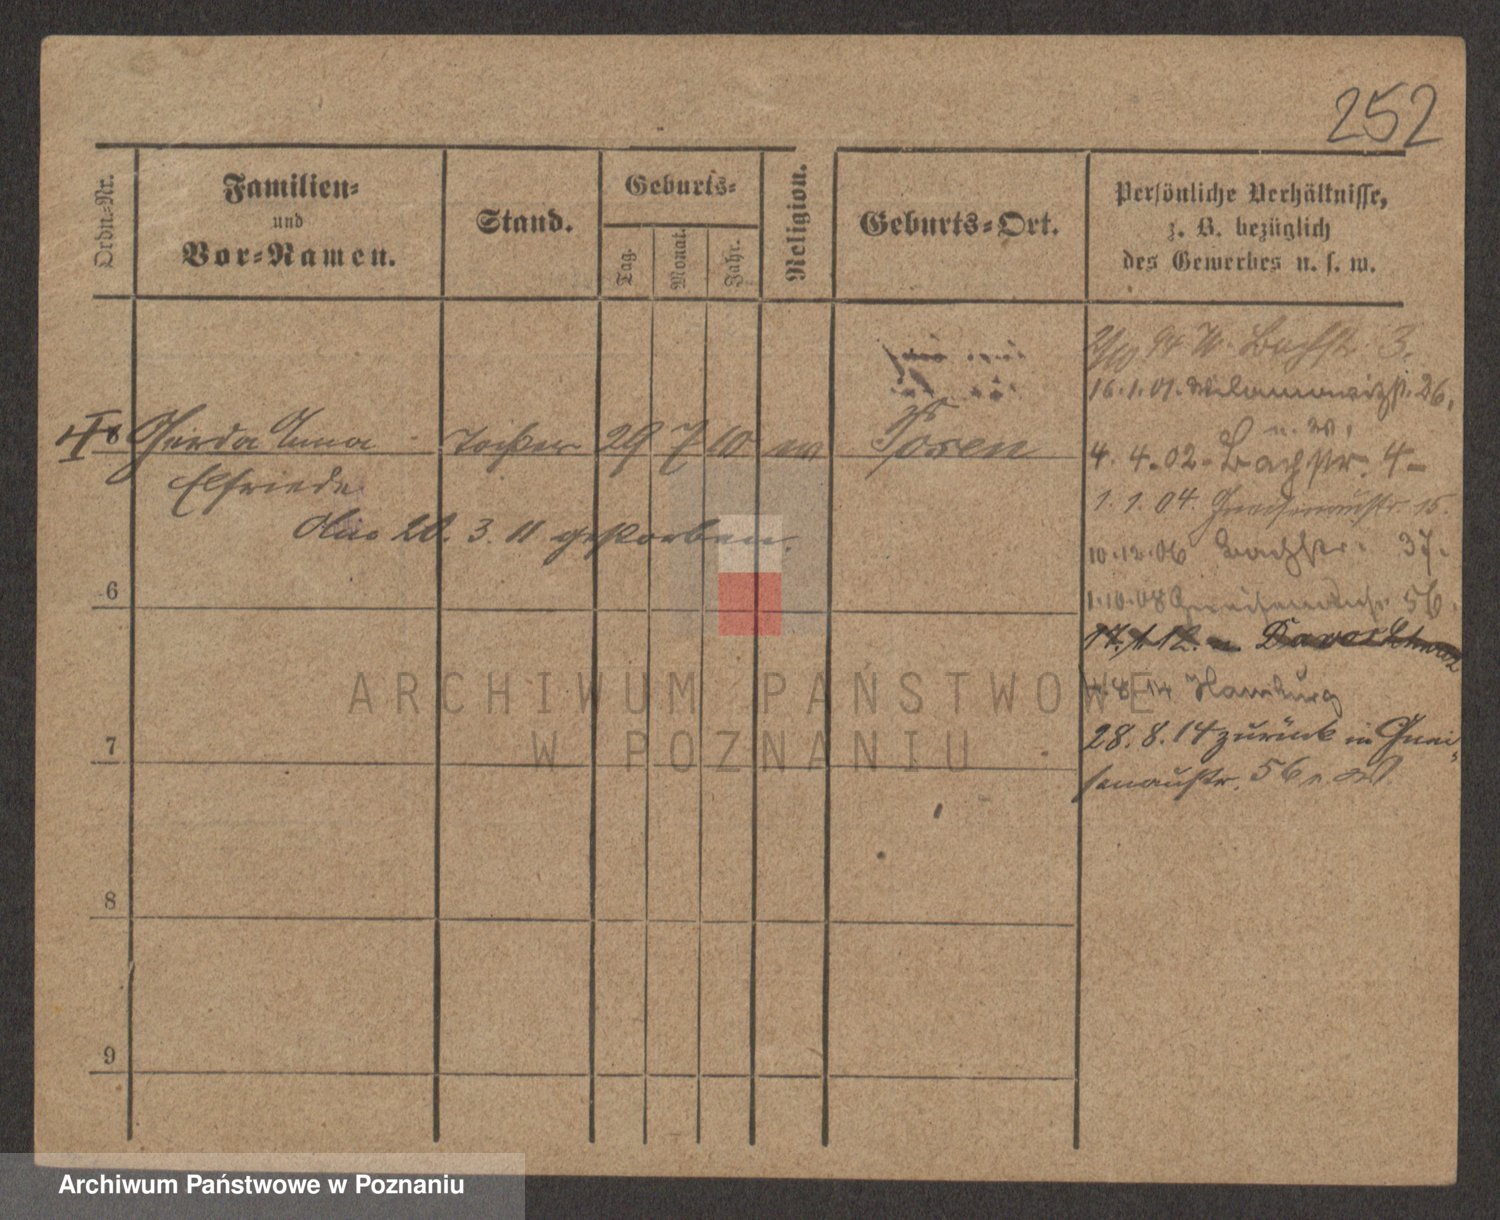 252
Ordn.-Nr.
Familien-
und
Vor-Namen.
Stand.
Geburts-
Tag.
Monat.
Jahr.
Religion.
Geburts-Ort.
Persönliche Verhältnisse,
z. B. bezüglich
des Gewerbes u. s. w.
Gerda Anna Tochter 29 7 10 ev Posen
Elfriede
20. 3. 11 gestorben.
94 W. Bachstr. 3.
16. 1. 01. Wilamowitzstr. 26,
n. W.
4. 4. 02. Bachstr. 4
1. 1. 04. Gneisenaustr. 15.
10. 12. 06 Bachstr. 37.
1. 10. 08 Gneisenaustr. 56.
17. 1. 12. n. Davos Schweiz
4. 8. 14 Hamburg
28. 8. 14 zurück in Gnei-
senaustr. 56
6
7
8
9
ARCHIWUM PAŃSTWOWE
W POZNANIU
Archiwum Państwowe w Poznaniu